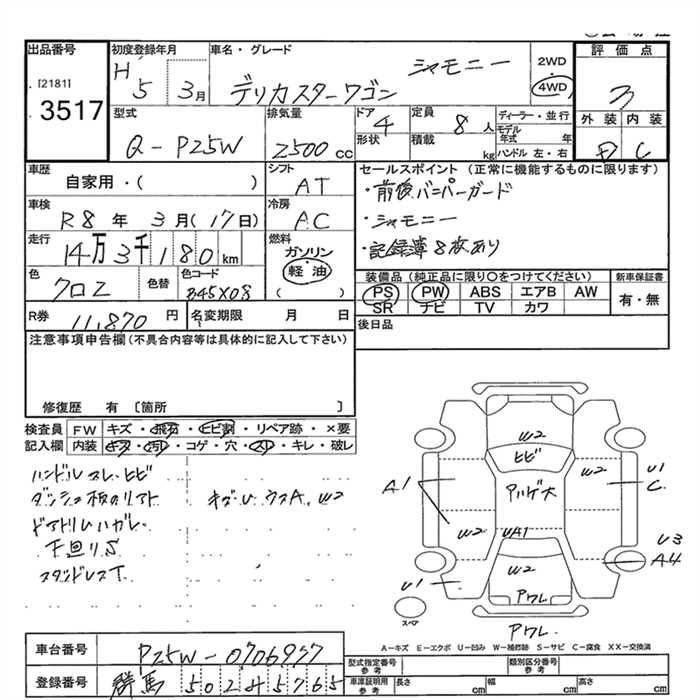 出品番号
[2181]
3517
初度登録年月
H 5 3月
車名・グレード
シャモニー
デリカスターワゴン
2WD
4WD
評価点
3
外装 内装
D C
型式
Q-P25W
排気量
2500 cc
ドア
4
形状
定員
8人
積載
kg
ディーラー・並行
モデル年式 年
ハンドル 左・右
車歴
自家用・( )
シフト
AT
車検
R8年 3月(17日)
冷房
AC
走行
14万3千180 km
燃料
ガソリン
軽油
( )
色
クロ2
色替
色コード
B45X08
R券
11,870 円
名変期限 月 日
セールスポイント(正常に機能するものに限ります)
・前後バンパーガード
・シャモニー
・記録簿8枚あり
装備品(純正品に限り○をつけてください)
PS PW ABS エアB AW
SR ナビ TV カワ
新車保証書
有・無
後日品
注意事項申告欄(不具合内容等は具体的に記入して下さい)
修復歴 有 〔箇所 〕
検査員記入欄
FW キズ・飛石・ヒビ割・リペア跡・×要
内装 キズ・汚レ・コゲ・穴・スレ・キレ・破レ
ハンドルスレ、ヒビ
ダッシュ板のリフト
キズU ウスA、W2
ドアトリムハガレ
下廻りS
スタッドレスT
W2
ヒビ
A1
W2
アハゲ大
W2
U1
C
UA1
W2
アワレ
U3
A4
U1
スペア
アワレ
A-キズ E-エクボ U-凹み W-補修跡 S-サビ C-腐食 XX-交換済
車台番号
P25W-0706977
登録番号
群馬 50 2 4 5765
型式指定番号
参考
類別区分番号
参考
車庫証明用
参考
長さ cm
幅 cm
高さ cm